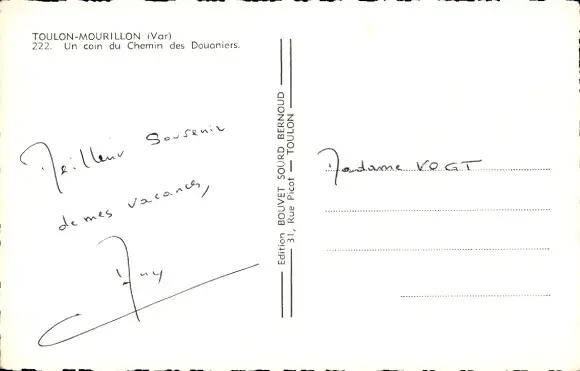 TOULON-MOURILLON (Var)
222. Un coin du Chemin des Douaniers.
Meilleur Souvenir
de mes vacances,
Edition BOUVET SOURD BERNOUD
31, Rue Picot — TOULON
Madame VOGT